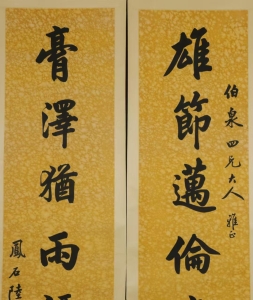 伯泉四兄大人雅正
雄節邁倫
膏澤猶雨
鳳石陸